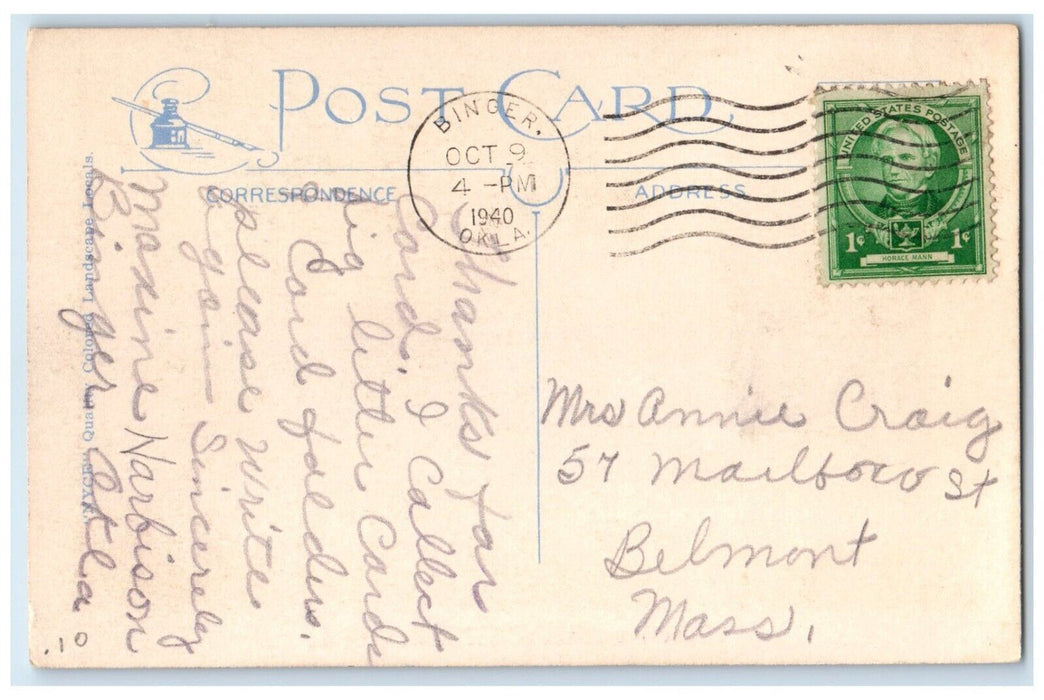 POST CARD
CORRESPONDENCE
ADDRESS
BINGER,
OCT 9
4 - PM
1940
OKLA.
UNITED STATES POSTAGE
1¢ 1¢
HORACE MANN
Thanks for
Card. I Collect
big letter Cards
Card folders.
please write
again Sincerely
Maxine Narbison
Binger Okla
Quality Colored Landscape Locals.
Mrs Annie Craig
57 Marlboro St
Belmont
Mass.
.10